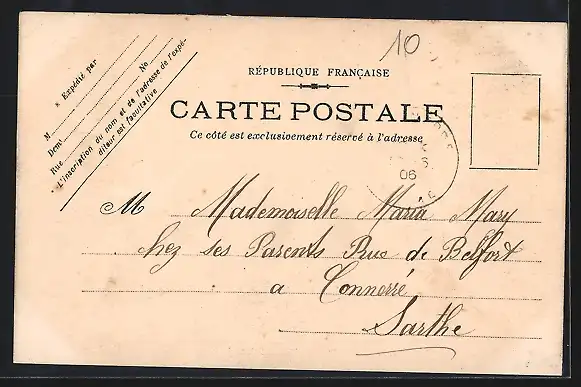 10
* Expédié par
M
Demt
Rue No
* L'inscription du nom et de l'adresse de l'expé-
diteur est facultative
RÉPUBLIQUE FRANÇAISE
CARTE POSTALE
Ce côté est exclusivement réservé à l'adresse
06
M Mademoiselle Maria Mary
chez ses Parents Rue de Belfort
a Connerré
Sarthe